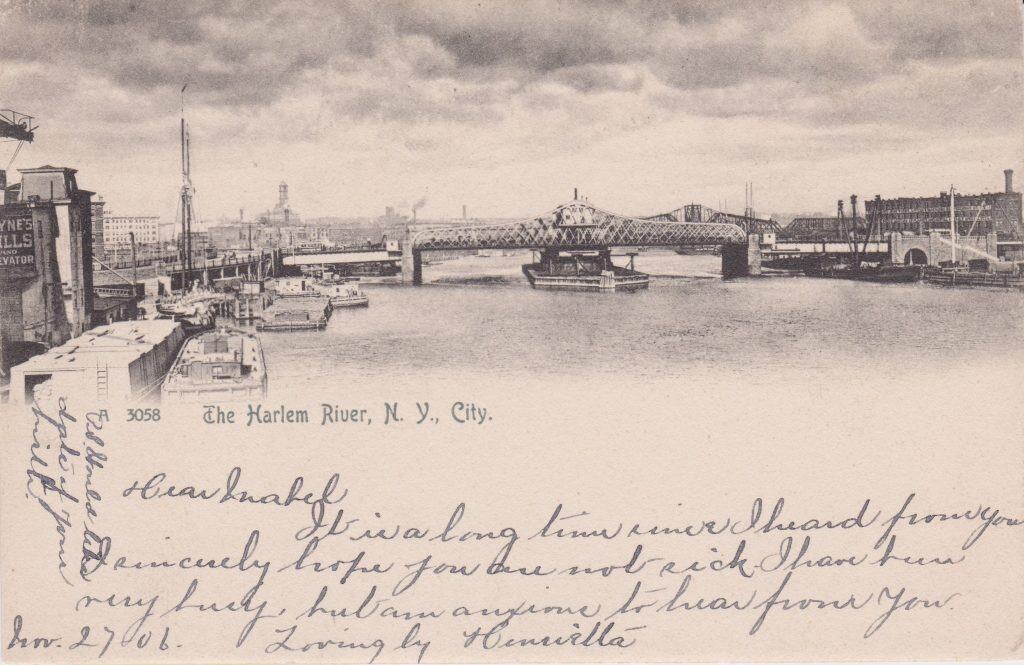 YNE'S
ILLS
EVATOR
A 3058 The Harlem River, N. Y., City.
Dear Mabel
It is a long time since I heard from you
I sincerely hope you are not sick. I have been
very busy, but am anxious to hear from you.
Nov. 27 06. Lovingly Henrietta
P.S. Would like
date of your
birth.